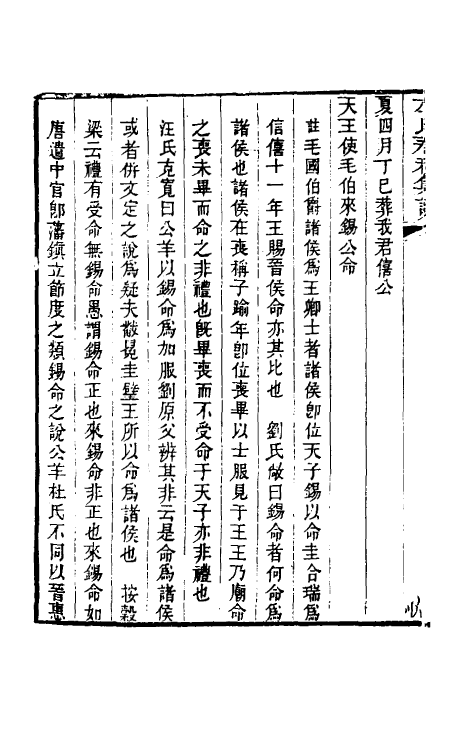 夏四月丁巳葬我君僖公
天王使毛伯來錫公命
註毛國伯爵諸侯為王卿士者諸侯卽位天子錫以命圭合瑞為
信僖十一年王賜晉侯命亦其比也　劉氏敞曰錫命者何命為
諸侯也諸侯在喪稱子踰年卽位喪畢以士服見于王王乃廟命
之喪未畢而命之非禮也旣畢喪而不受命于天子亦非禮也
汪氏克寬曰公羊以錫命為加服劉原父辨其非云是命為諸侯
或者倂文定之說為疑夫黻冕圭璧王所以命為諸侯也　按穀
梁云禮有受命無錫命愚謂錫命正也來錫命非正也來錫命如
唐遣中官卽藩鎭立節度之類錫命之說公羊杜氏不同以晉惠